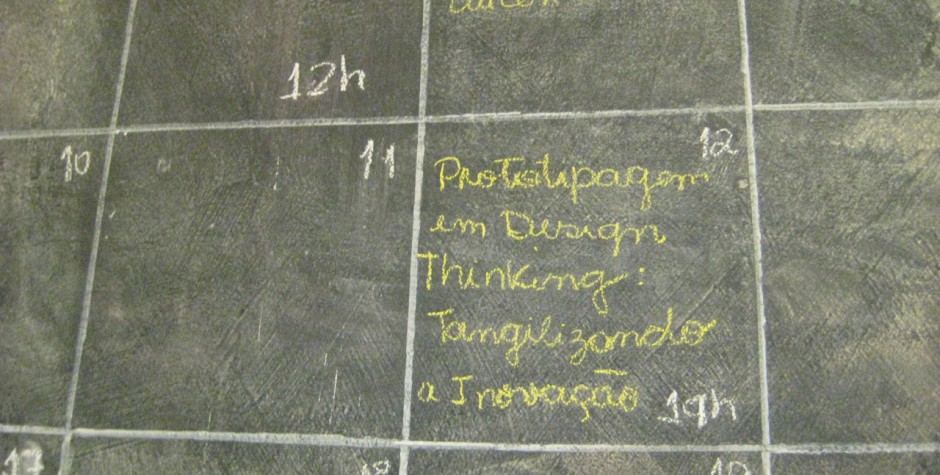 12h
10
11
12
Prototipagem
em Design
Thinking:
Tangilizando
a Inovação
19h
17
18
19